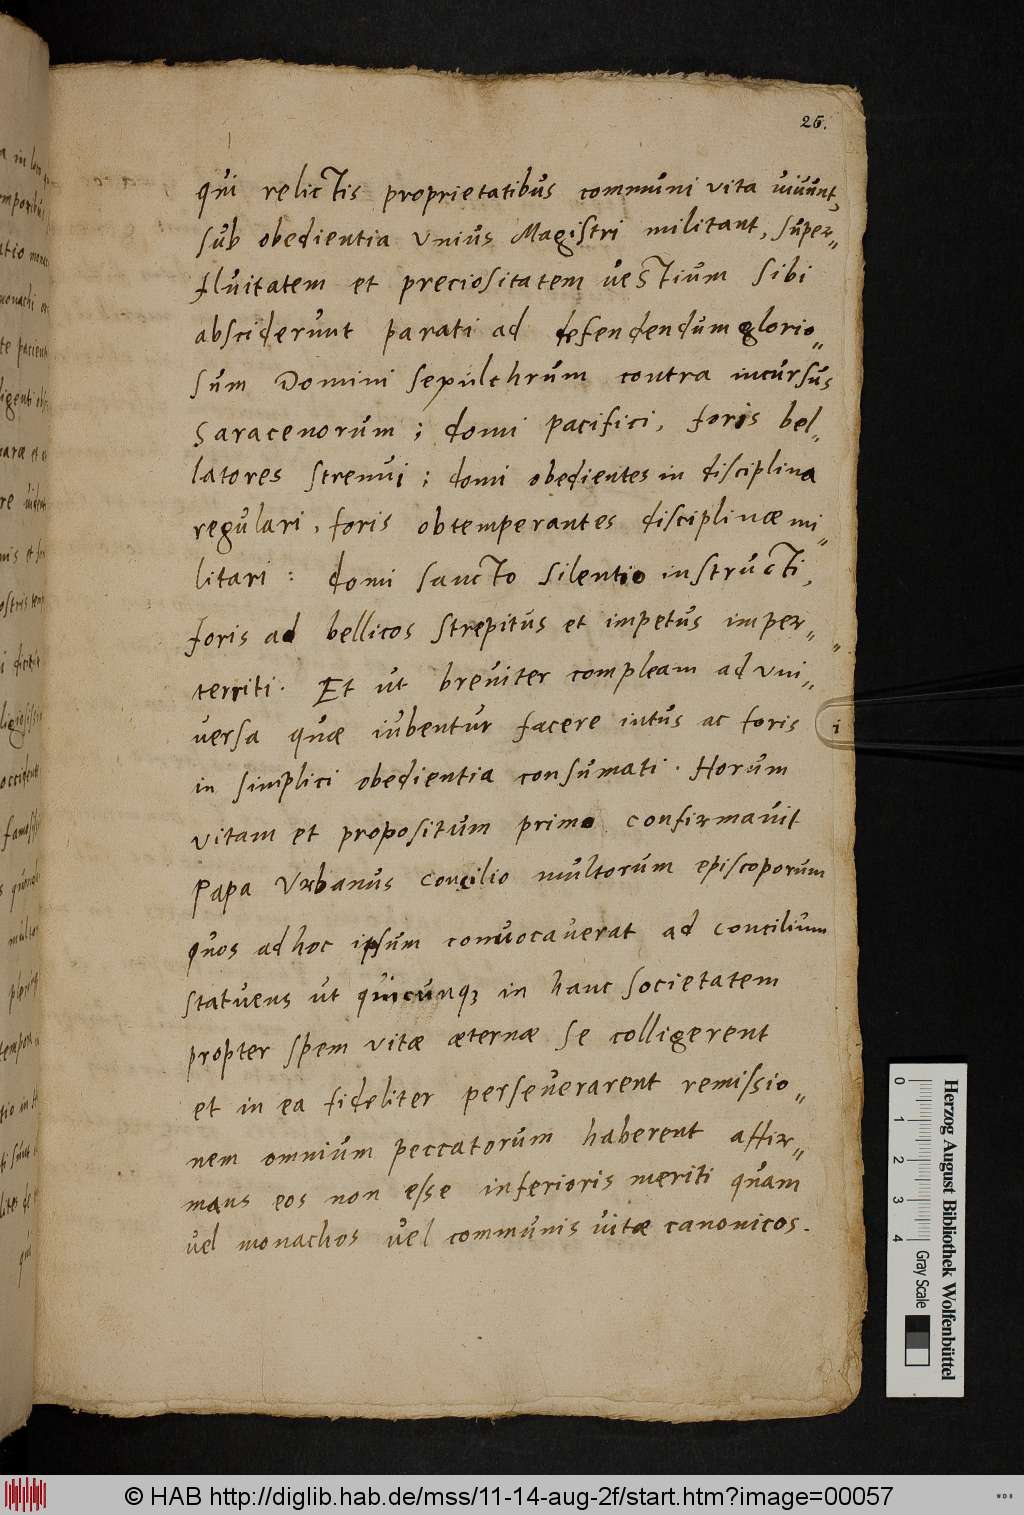 26.
qui relictis proprietatibus communi vita uiuunt,
sub obedientia unius Magistri militant, super„
fluitatem et preciositatem vestium sibi
absciderunt parati ad defendendum glorio„
sum Domini sepulchrum contra incursus
Saracenorum ; domi pacifici, foris bel„
latores strenui ; domi obedientes in disciplina
regulari, foris obtemperantes disciplinæ mi„
litari : domi sancto silentio instructi,
foris ad bellicos strepitus et impetus imper„
territi. Et ut breviter compleam ad vni„
versa quæ iubentur facere intus ac foris
in simplici obedientia consumati. Horum
vitam et propositum primo confirmavit
Papa Urbanus concilio multorum episcoporum
quos ad hoc ipsum convocaverat ad concilium
statuens ut quicunq; in hanc societatem
propter spem vitæ æternæ se colligerent
et in ea fideliter perseverarent remissio„
nem omnium peccatorum haberent affir„
mans eos non esse inferioris meriti quam
vel monachos vel communis vitæ canonicos.
Herzog August Bibliothek Wolfenbüttel
0 1 2 3 4
Gray Scale
© HAB http://diglib.hab.de/mss/11-14-aug-2f/start.htm?image=00057